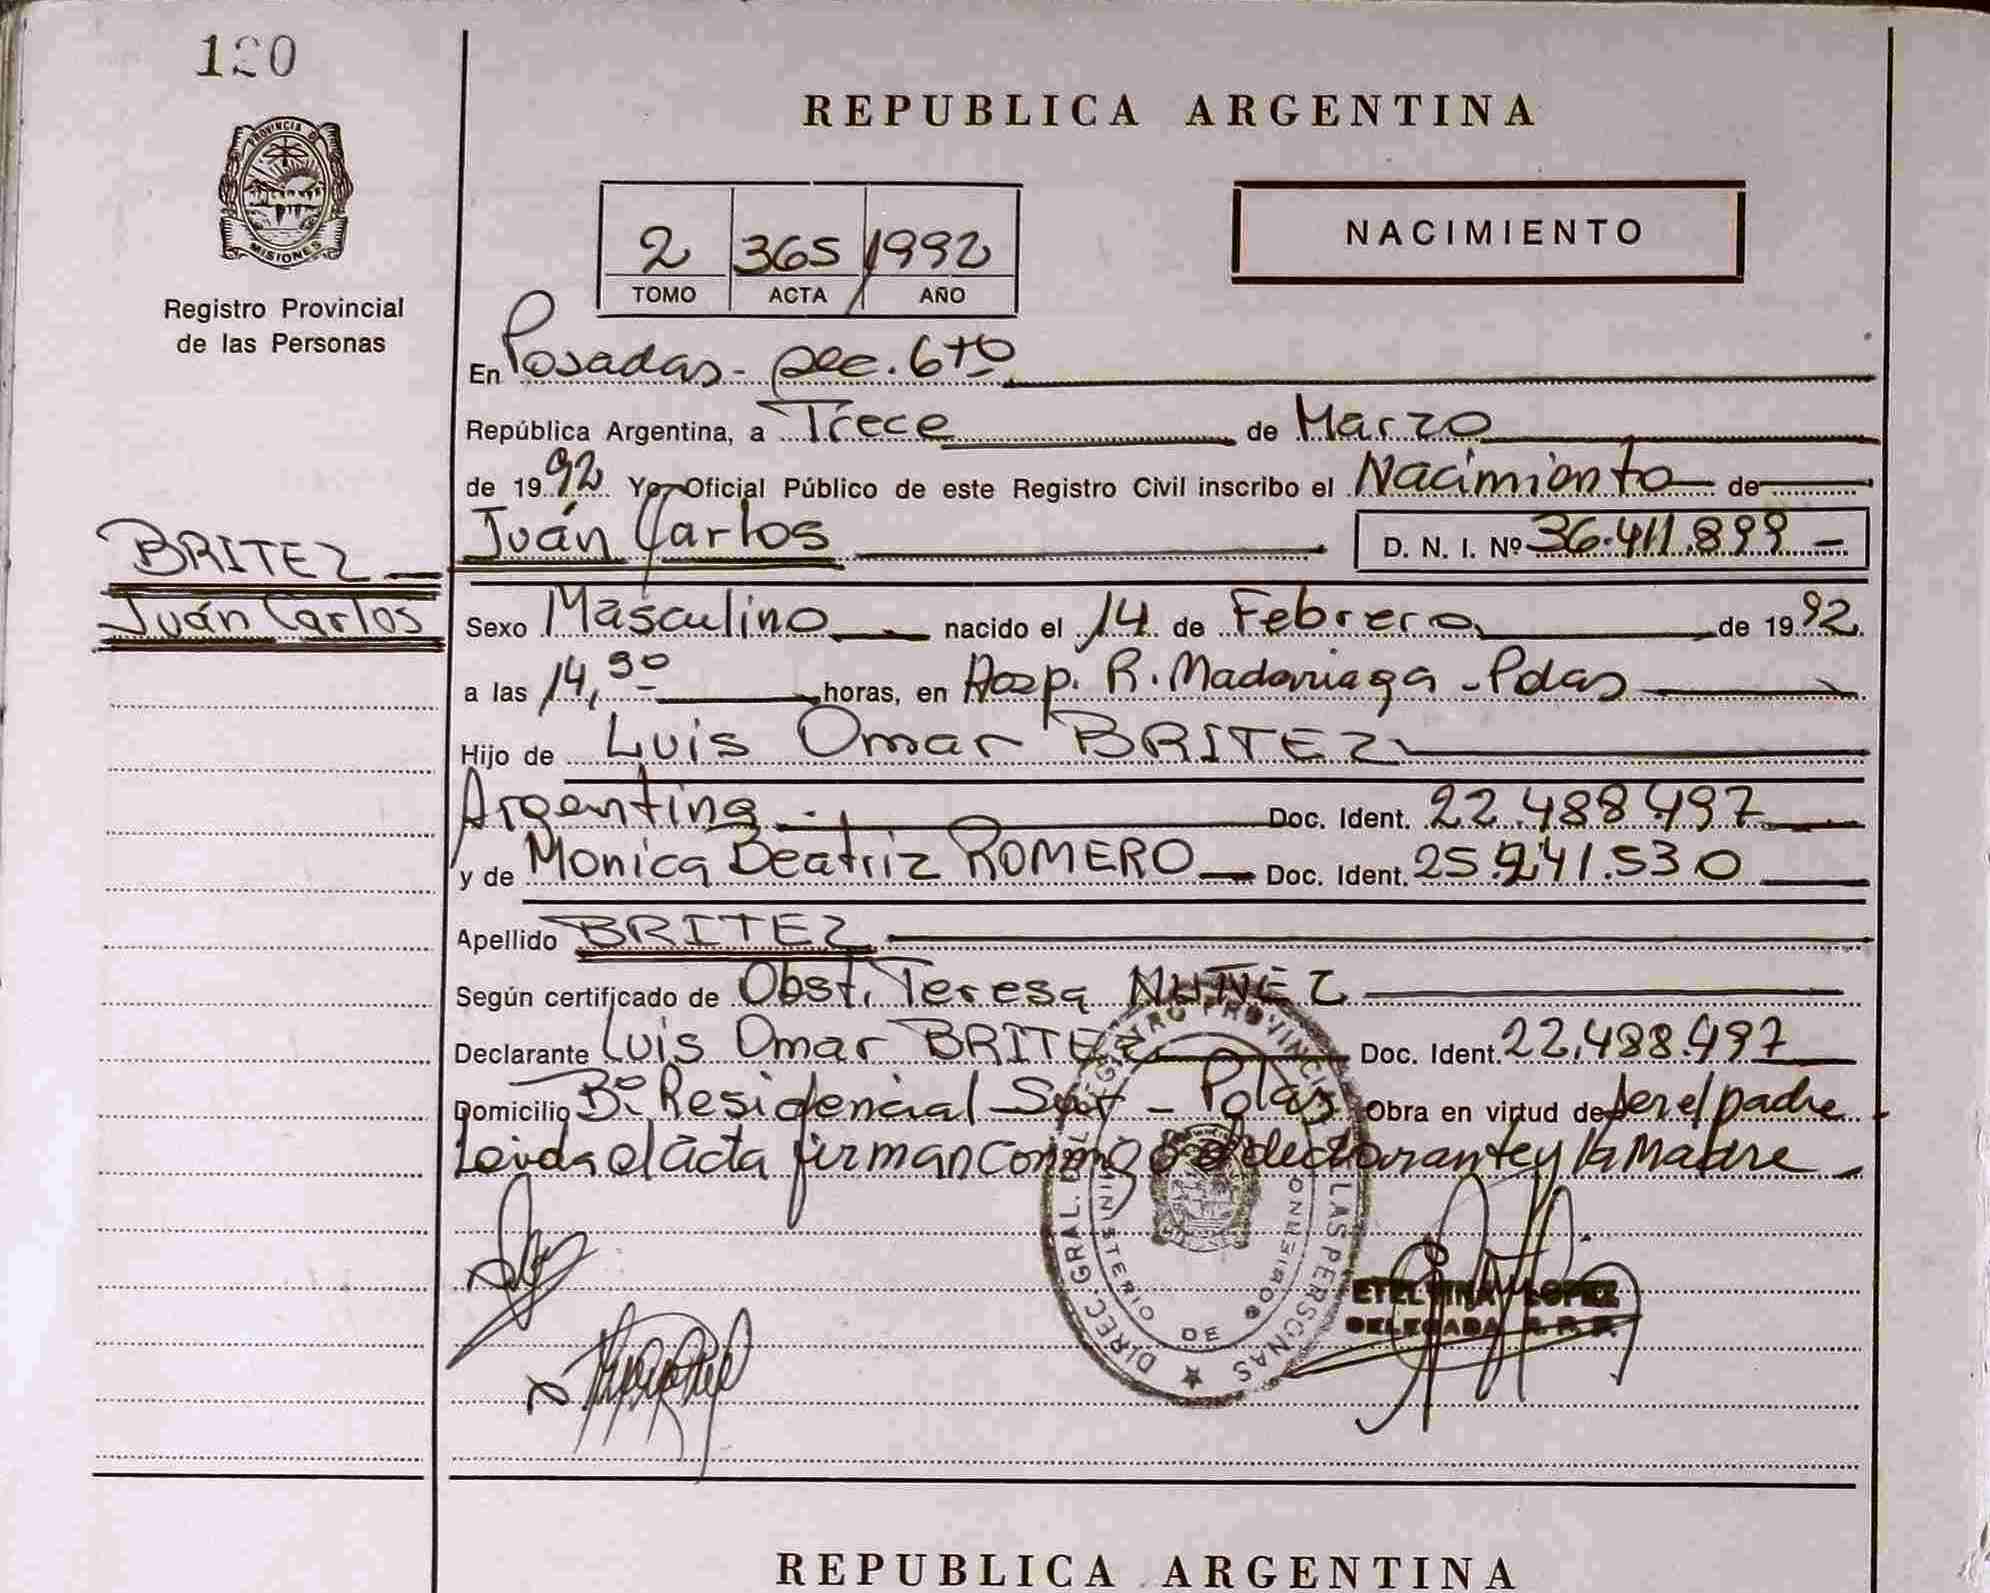 120
PROVINCIA D
MISIONES
Registro Provincial
de las Personas
REPUBLICA ARGENTINA
2 365 1992
TOMO ACTA AÑO
NACIMIENTO
En Posadas - sec. 6to
República Argentina, a Trece de Marzo
de 1992 Yo Oficial Público de este Registro Civil inscribo el Nacimiento de
BRITEZ
Juán Carlos D. N. I. Nº 36.411.899
Juán Carlos
Sexo Masculino nacido el 14 de Febrero de 1992.
a las 14,30 horas, en Hosp. R. Madariaga - Pdas
Hijo de Luis Omar BRITEZ
Argentina Doc. Ident. 22.488.497
y de Monica Beatriz ROMERO Doc. Ident. 25.241.530
Apellido BRITEZ
Según certificado de Obst. Teresa NUÑEZ
Declarante Luis Omar BRITEZ Doc. Ident. 22.488.497
Domicilio Bº Residencial Sur - Pdas Obra en virtud de ser el padre
Leida el acta firman conmigo el declarante y la Madre
DIREC. GRAL. DEL REGISTRO PROVINCIAL LAS PERSONAS
MINISTERIO DE GOBIERNO
ETELVINA LOPEZ
DELEGADA R.P.P.
REPUBLICA ARGENTINA